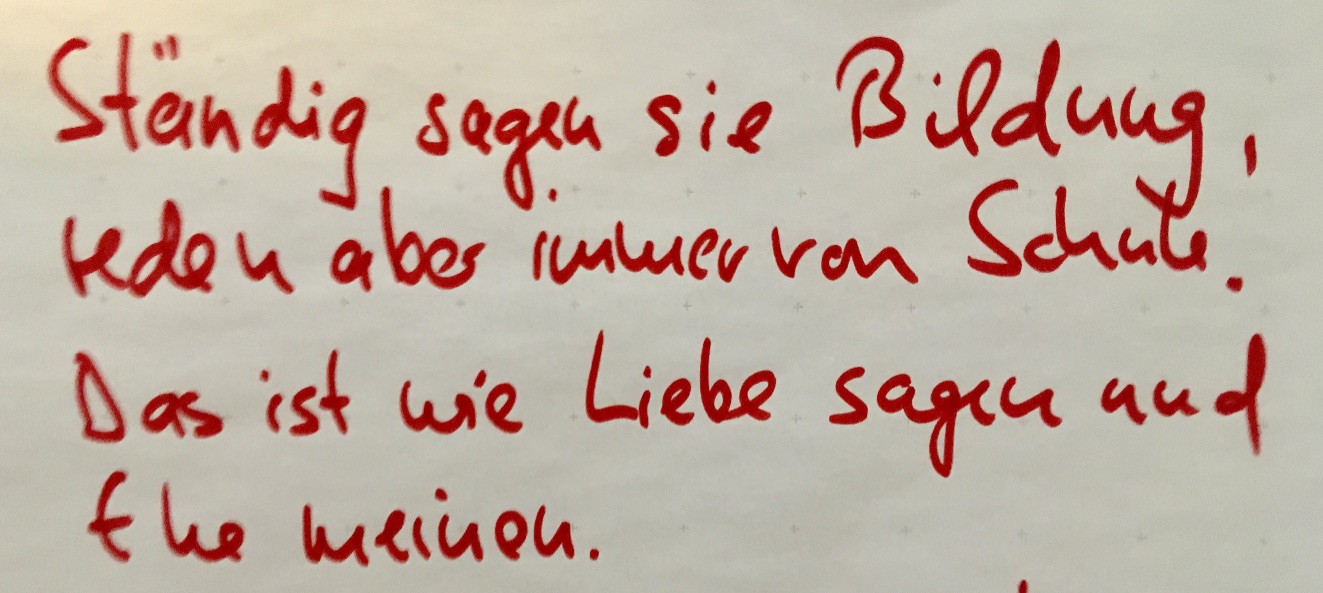 Ständig sagen sie Bildung,
reden aber immer von Schule.
Das ist wie Liebe sagen und
Ehe meinen.